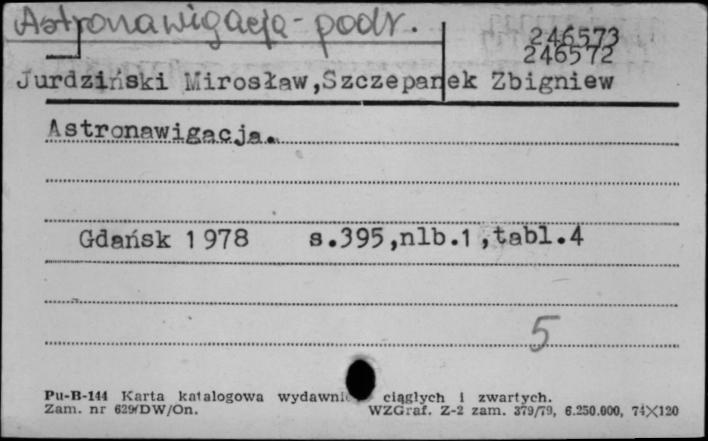 Astronawigacja - podr.
246573
246572
Jurdziński Mirosław,Szczepanek Zbigniew
Astronawigacja.
Gdańsk 1978 s.395,nlb.1,tabl.4
5
Pu-B-144 Karta katalogowa wydawni ciągłych i zwartych.
Zam. nr 629/DW/On. WZGraf. Z-2 zam. 379/79, 6.250.000, 74X120